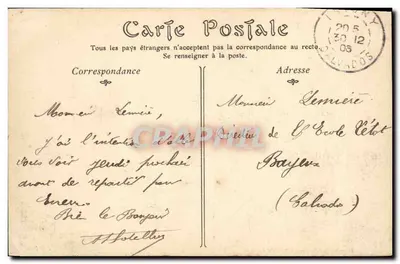 Carte Postale
Tous les pays étrangers n'acceptent pas la correspondance au recto
Se renseigner à la poste.
Correspondance
Monsieur Lemière,
J'ai l'intention d'aller
vous voir jeudi prochain
avant de repartir pour
Evreux
Bien le Bonjour
Adresse
Monsieur Lemière
de l'Ecole Létot
Bayeux
(Calvados)
20 5
30 -12
08
CALVADOS